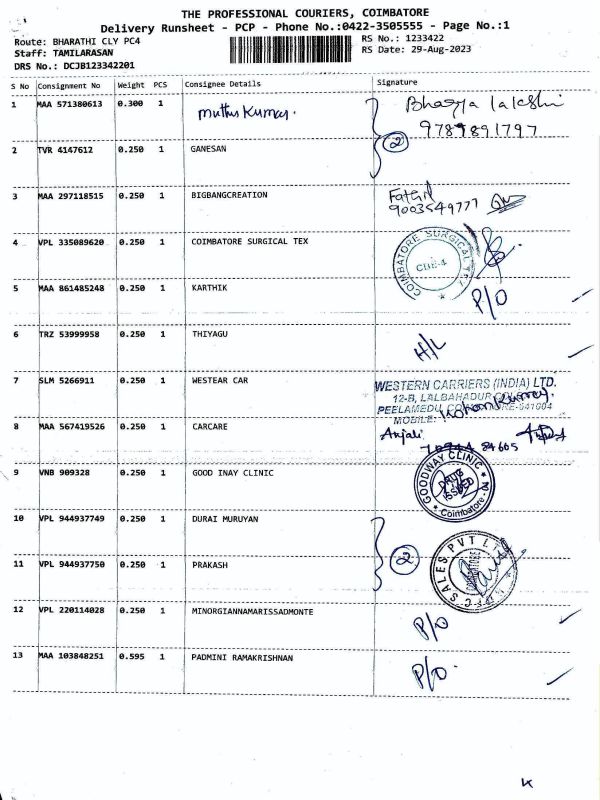 THE PROFESSIONAL COURIERS, COIMBATORE
Delivery Runsheet - PCP - Phone No.:0422-3505555 - Page No.:1
Route: BHARATHI CLY PC4 RS No.: 1233422
Staff: TAMILARASAN RS Date: 29-Aug-2023
DRS No.: DCJB123342201
S No Consignment No Weight PCS Consignee Details Signature
1 MAA 571380613 0.300 1 Muthu Kumar. Bhagya lakshi
9789891797
2
2 TVR 4147612 0.250 1 GANESAN
3 MAA 297118515 0.250 1 BIGBANGCREATION
9003549777
4 VPL 335089620 0.250 1 COIMBATORE SURGICAL TEX COIMBATORE SURGICAL TEX CBE-4
5 MAA 861485248 0.250 1 KARTHIK P/O
6 TRZ 53999958 0.250 1 THIYAGU H/L
7 SLM 5266911 0.250 1 WESTEAR CAR WESTERN CARRIERS (INDIA) LTD.
12-B, LALBAHADUR
PEELAMEDU, COIMBATORE-641004
MOBILE: Mohan Kumar.
8 MAA 567419526 0.250 1 CARCARE Anjali
84605
9 VNB 909328 0.250 1 GOOD INAY CLINIC GOODWAY CLINIC DRUG ISSUED Coimbatore - 04
10 VPL 944937749 0.250 1 DURAI MURUYAN
2
11 VPL 944937750 0.250 1 PRAKASH SALES PVT LTD
12 VPL 220114028 0.250 1 MINORGIANNAMARISSADMONTE P/O
13 MAA 103848251 0.595 1 PADMINI RAMAKRISHNAN P/O